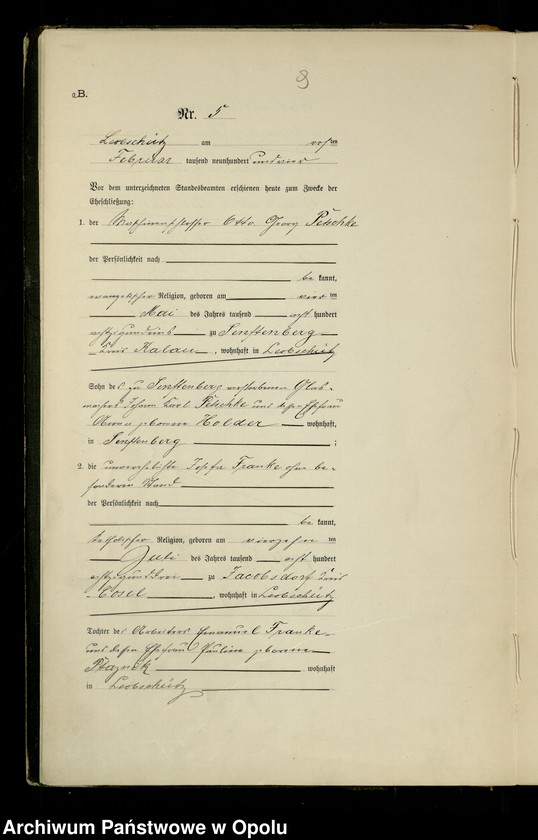 9
B.
Nr. 5
Leobschütz am ten
Februar tausend neunhundert und vier
Vor dem unterzeichneten Standesbeamten erschienen heute zum Zwecke der
Eheschließung:
1. der Maschinenschlosser Otto Georg Petschke
der Persönlichkeit nach
be kannt,
evangelischer Religion, geboren am vierten
Mai des Jahres tausend acht hundert
achtzigundeins zu Senftenberg
Kreis Kalau, wohnhaft in Leobschütz
Sohn des zu Senftenberg verstorbenen Glas-
machers Johann Karl Petschke und dessen Ehefrau
geborene Holder wohnhaft,
in Senftenberg ;
2. die unverehelichte Josefa Franke, ohne be-
sonderen Stand
der Persönlichkeit nach
be kannt,
katholischer Religion, geboren am vierzehnten
Juli des Jahres tausend acht hundert
achtzigunddrei zu Jacobsdorf Kreis
Cosel, wohnhaft in Leobschütz
Tochter des Arbeiters Emanuel Franke
und dessen Ehefrau Pauline geborene
wohnhaft
in Leobschütz
Archiwum Państwowe w Opolu